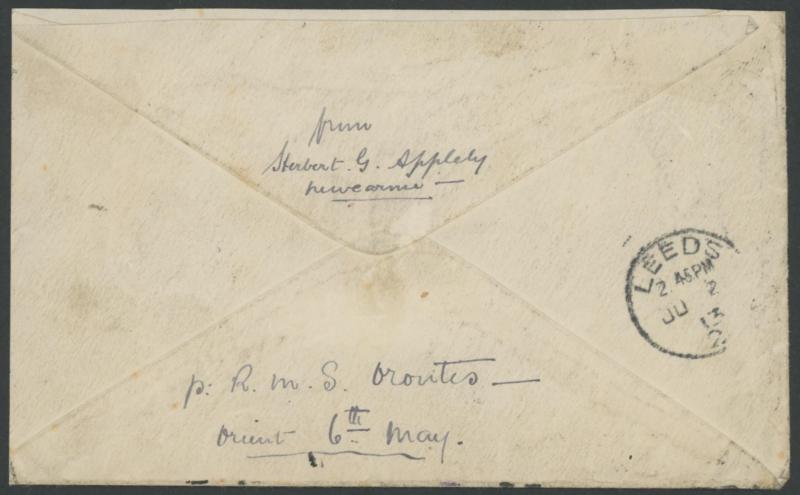 from
Herbert. G. Appleby
p: R. M. S. Orontes —
Orient 6th May.
LEEDS
2.45PM
JU 2
13
2